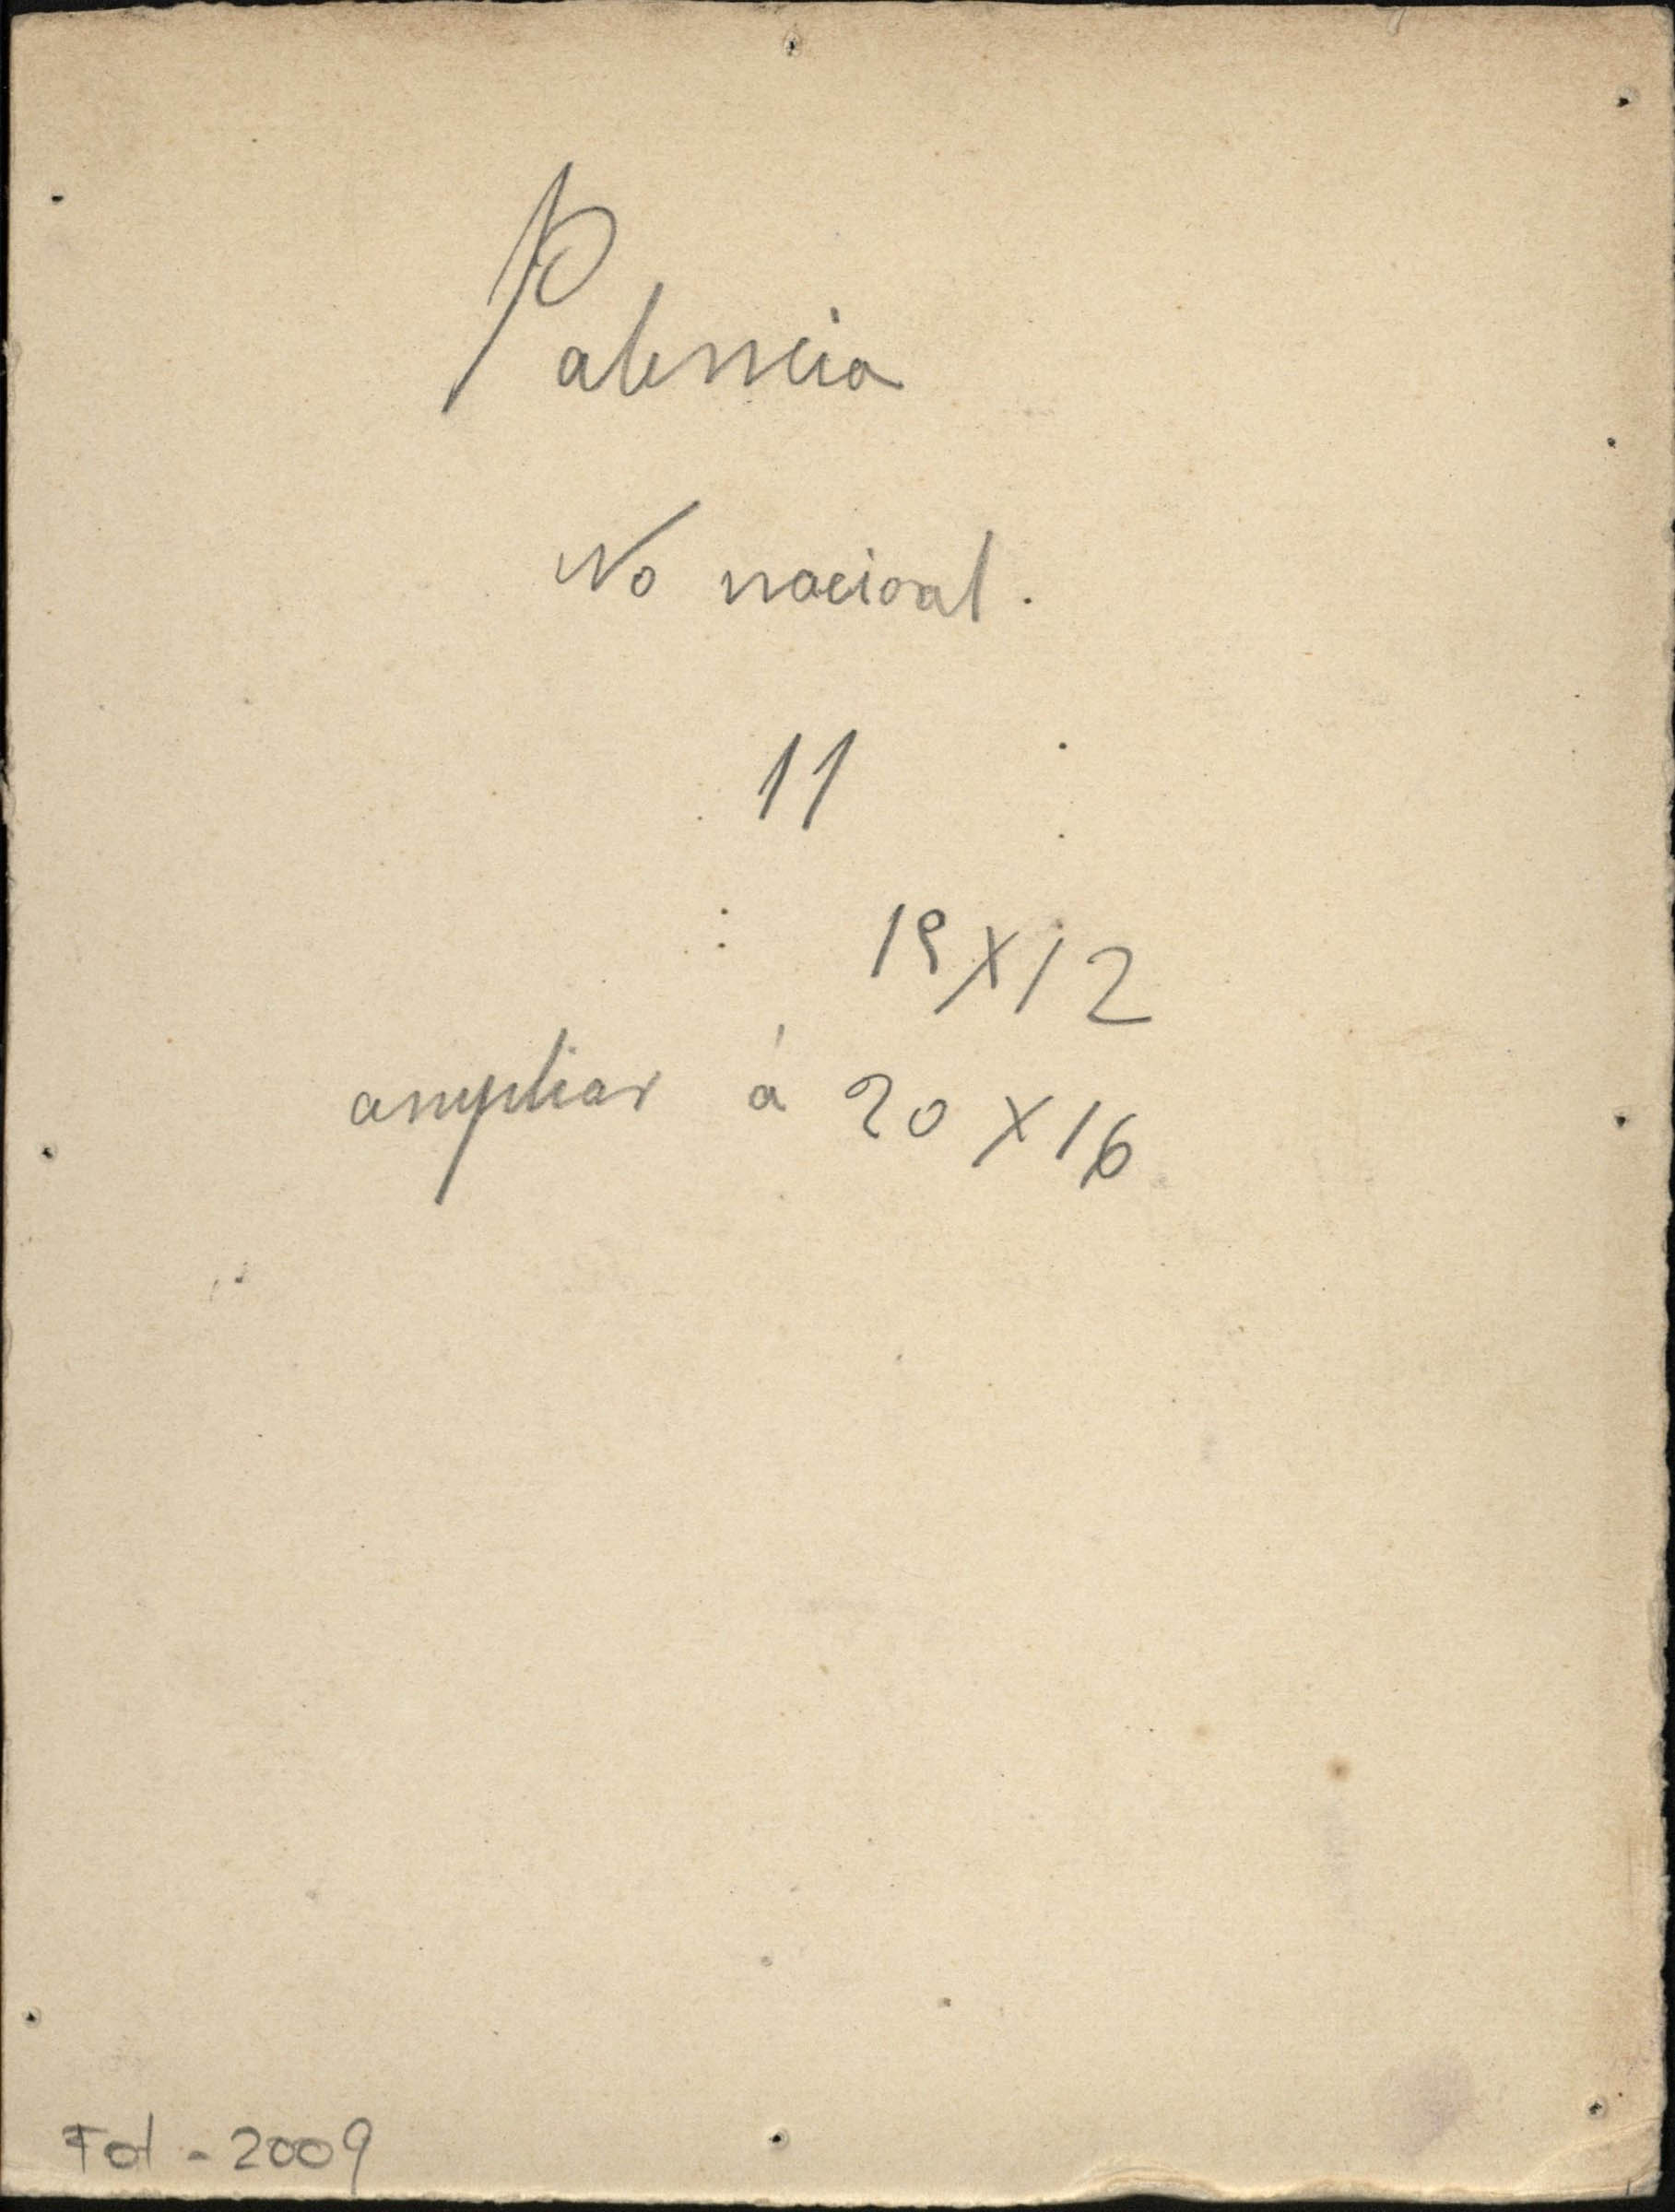 Palencia
No nacional.
11
19X12
ampliar á 20 X 16
Fol - 2009